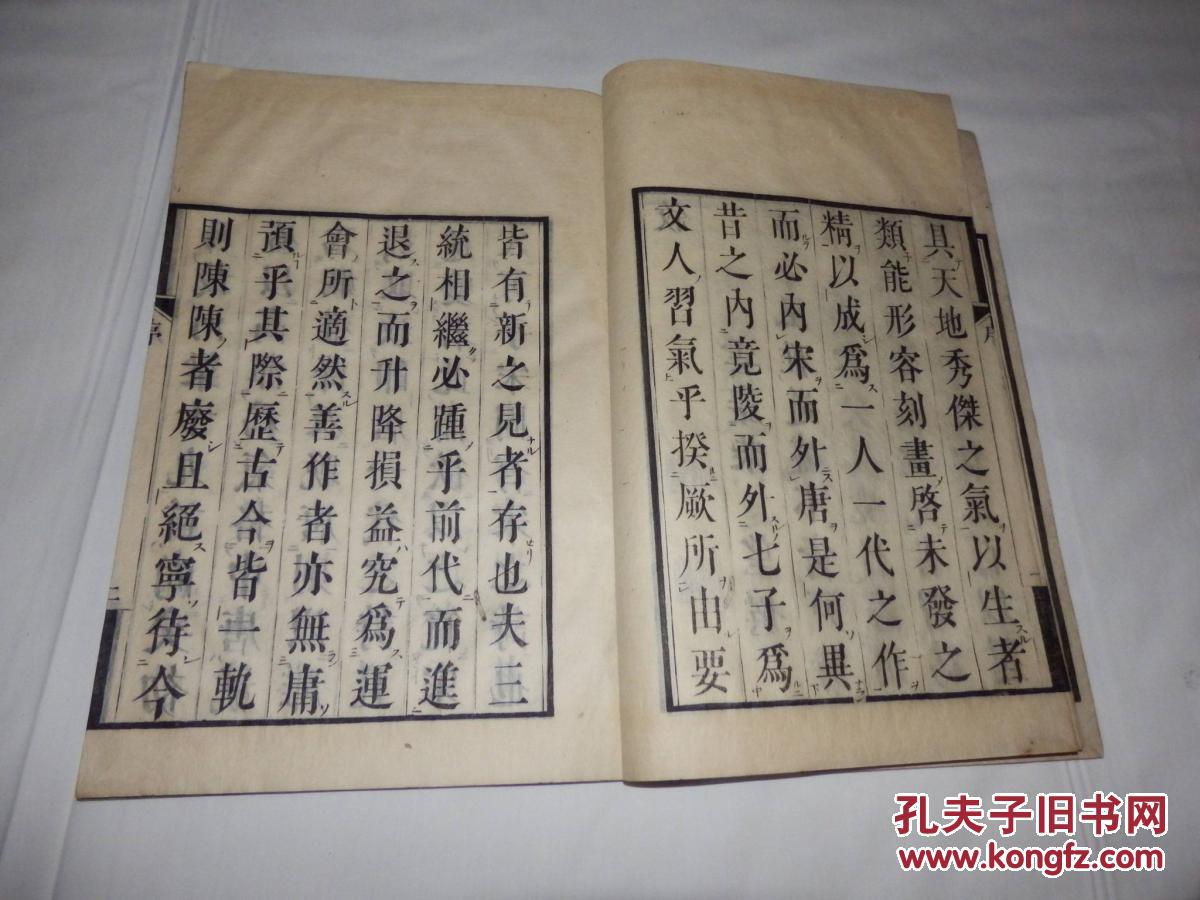 具天地秀傑之氣以生者
類能形容刻畫啓未發之
精以成爲一人一代之作
而必內宋而外唐是何異
昔之內竟陵而外七子爲
文人習氣乎揆厥所由要
皆有新之見者存也夫三
統相繼必踵乎前代而進
退之而升降損益究爲運
會所適然善作者亦無庸
預乎其際歷古今皆一軌
則陳陳者廢且絕寧待今
序
二
孔夫子旧书网
www.kongfz.com